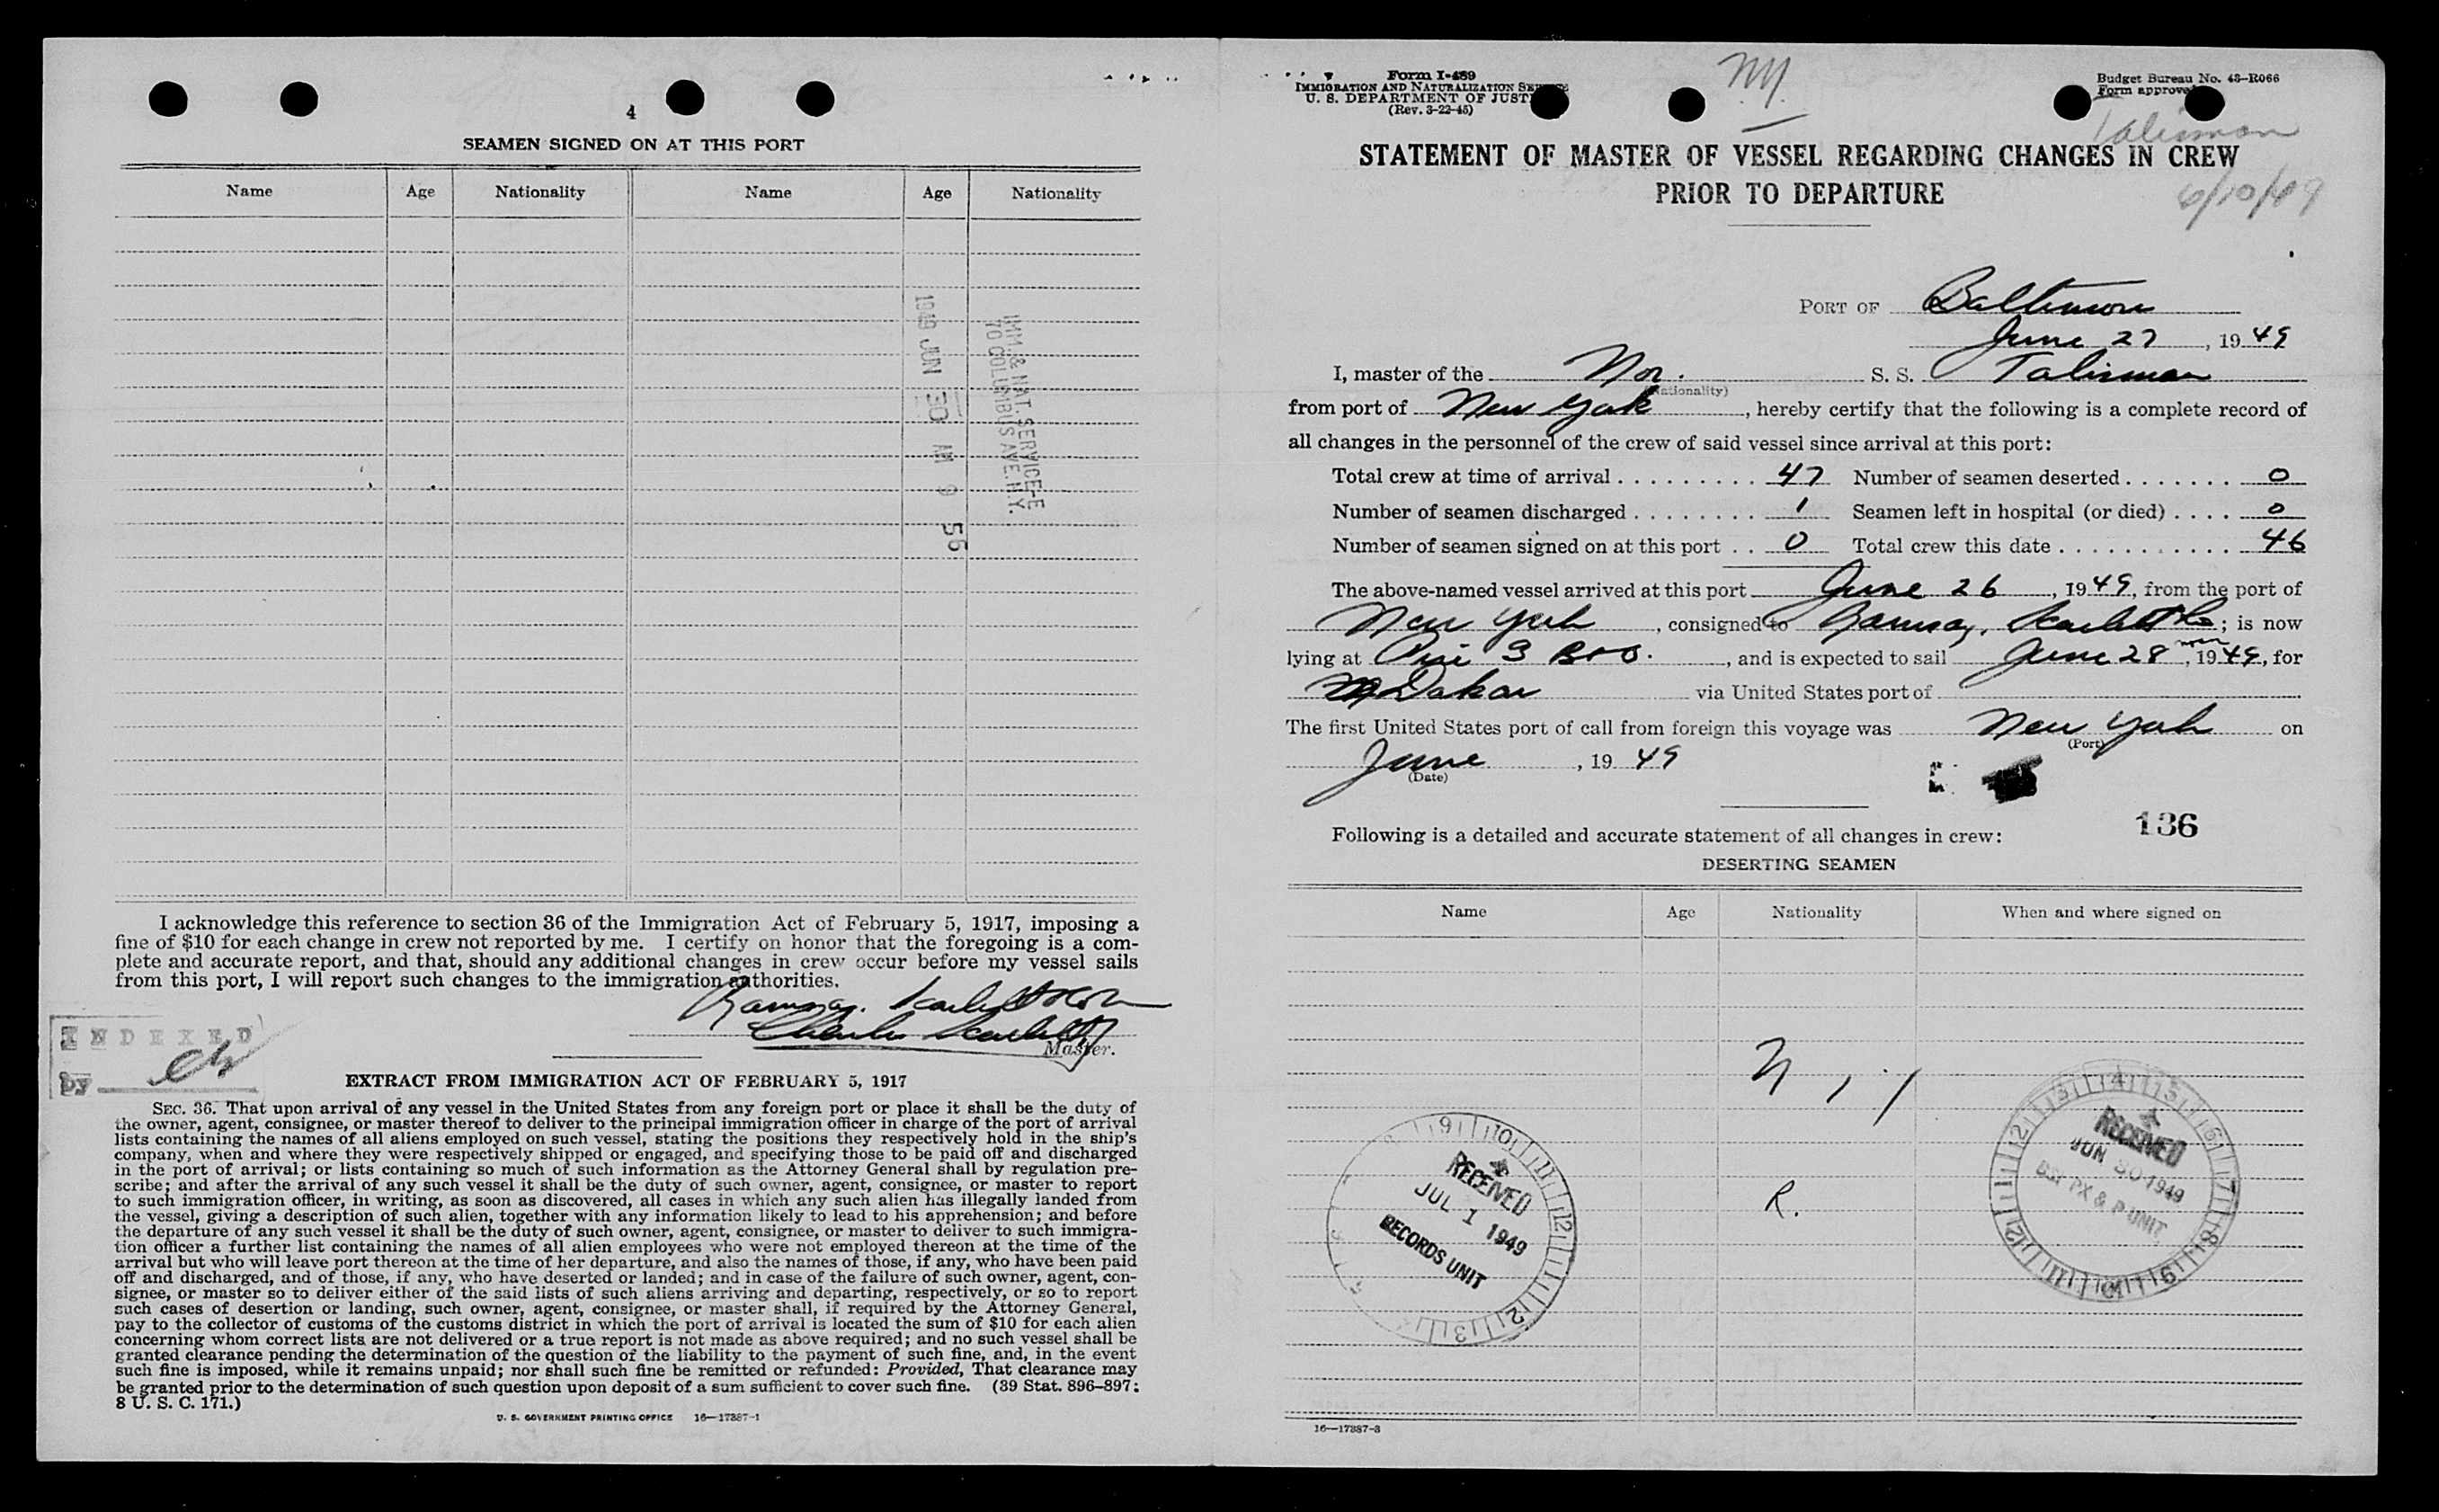 4
SEAMEN SIGNED ON AT THIS PORT
Name Age Nationality Name Age Nationality
1949 JUN 30 AM 9 56
IMM. & NAT. SERVICE-E
70 COLUMBUS AVE. N.Y.
I acknowledge this reference to section 36 of the Immigration Act of February 5, 1917, imposing a
fine of $10 for each change in crew not reported by me. I certify on honor that the foregoing is a com-
plete and accurate report, and that, should any additional changes in crew occur before my vessel sails
from this port, I will report such changes to the immigration authorities.
Ramsay, Scarlett & Co
Charles Scarlett
Master.
INDEXED
by
EXTRACT FROM IMMIGRATION ACT OF FEBRUARY 5, 1917
SEC. 36. That upon arrival of any vessel in the United States from any foreign port or place it shall be the duty of
the owner, agent, consignee, or master thereof to deliver to the principal immigration officer in charge of the port of arrival
lists containing the names of all aliens employed on such vessel, stating the positions they respectively hold in the ship's
company, when and where they were respectively shipped or engaged, and specifying those to be paid off and discharged
in the port of arrival; or lists containing so much of such information as the Attorney General shall by regulation pre-
scribe; and after the arrival of any such vessel it shall be the duty of such owner, agent, consignee, or master to report
to such immigration officer, in writing, as soon as discovered, all cases in which any such alien has illegally landed from
the vessel, giving a description of such alien, together with any information likely to lead to his apprehension; and before
the departure of any such vessel it shall be the duty of such owner, agent, consignee, or master to deliver to such immigra-
tion officer a further list containing the names of all alien employees who were not employed thereon at the time of the
arrival but who will leave port thereon at the time of her departure, and also the names of those, if any, who have been paid
off and discharged, and of those, if any, who have deserted or landed; and in case of the failure of such owner, agent, con-
signee, or master so to deliver either of the said lists of such aliens arriving and departing, respectively, or so to report
such cases of desertion or landing, such owner, agent, consignee, or master shall, if required by the Attorney General,
pay to the collector of customs of the customs district in which the port of arrival is located the sum of $10 for each alien
concerning whom correct lists are not delivered or a true report is not made as above required; and no such vessel shall be
granted clearance pending the determination of the question of the liability to the payment of such fine, and, in the event
such fine is imposed, while it remains unpaid; nor shall such fine be remitted or refunded: Provided, That clearance may
be granted prior to the determination of such question upon deposit of a sum sufficient to cover such fine. (39 Stat. 896–897;
8 U. S. C. 171.)
U. S. GOVERNMENT PRINTING OFFICE 16—17387-1
Form I-489
IMMIGRATION AND NATURALIZATION
U. S. DEPARTMENT OF JUST
(Rev. 3-22-45)
NY.
Budget Bureau No. 43–R066
Form approve
Talisman
6/10/49
STATEMENT OF MASTER OF VESSEL REGARDING CHANGES IN CREW
PRIOR TO DEPARTURE
PORT OF Baltimore
June 27, 1949
I, master of the Nor. S. S. Talisman
(Nationality)
from port of New York, hereby certify that the following is a complete record of
all changes in the personnel of the crew of said vessel since arrival at this port:
Total crew at time of arrival 47 Number of seamen deserted 0
Number of seamen discharged 1 Seamen left in hospital (or died) 0
Number of seamen signed on at this port 0 Total crew this date 46
The above-named vessel arrived at this port June 26, 1949, from the port of
New York, consigned to Ramsay, Scarlett & Co; is now
lying at Pier 3 B&O., and is expected to sail June 28, 1949, for
Dakar via United States port of
The first United States port of call from foreign this voyage was New York on
(Port)
June, 1949
(Date)
136
Following is a detailed and accurate statement of all changes in crew:
DESERTING SEAMEN
Name Age Nationality When and where signed on
N
R.
RECEIVED
JUL 1 1949
RECORDS UNIT
RECEIVED
JUN 30 1949
PX & P UNIT
16—17387-3